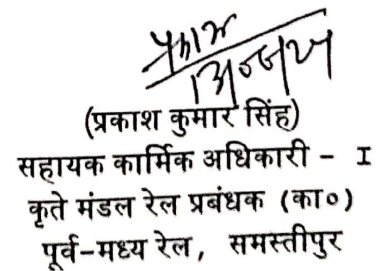 (प्रकाश कुमार सिंह)
सहायक कार्मिक अधिकारी - I
कृते मंडल रेल प्रबंधक (का०)
पूर्व-मध्य रेल, समस्तीपुर